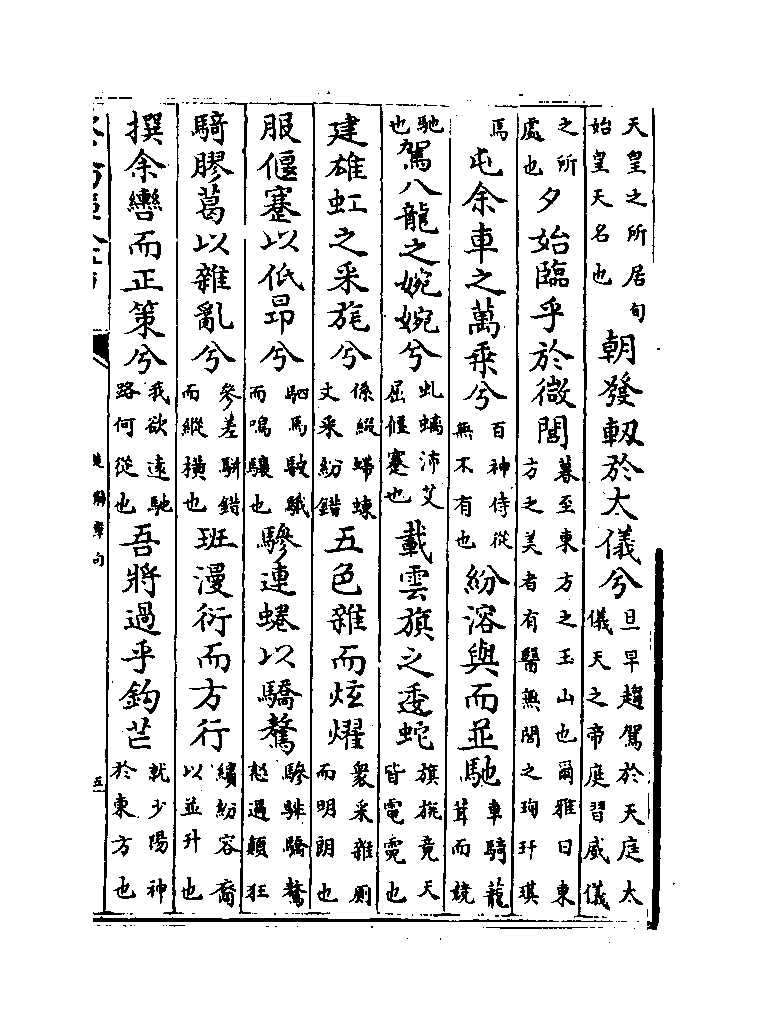 天皇之所居旬始皇天名也朝發軔於太儀兮旦早趨駕於天庭太儀天之帝庭習威儀
之所處也夕始臨乎於微閭暮至東方之玉山也爾雅曰東方之美者有醫無閭之珣玗琪
焉屯余車之萬乘兮百神侍從無不有也紛溶與而並馳車騎籠茸而競
馳也駕八龍之婉婉兮虬螭沛艾屈偃蹇也載雲旗之逶蛇旗旄竟天皆電霓也
建雄虹之采旄兮係綴蝃蝀文采紛錯五色雜而炫燿衆采雜厠而明朗也
服偃蹇以低昂兮駟馬駊騀而鳴驤也驂連蜷以驕驁驂騑驕驁怒過顛狂
騎膠葛以雜亂兮參差騈錯而縱橫也班漫衍而方行繽紛容裔以並升也
撰余轡而正策兮我欲遠馳路何從也吾將過乎鈎芒就少陽神於東方也
楚辭章句
五